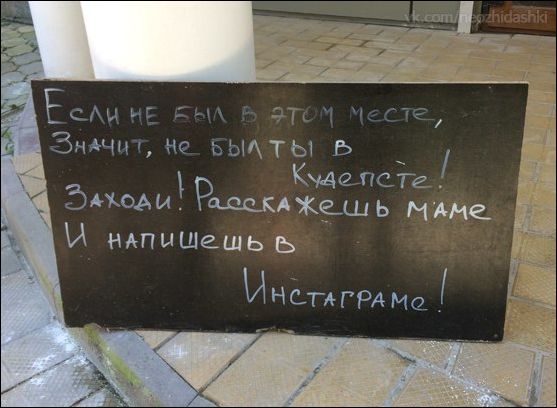 vk.com/neozhidashki
Если не был в этом месте,
Значит, не был ты в
Кудепсте!
Заходи! Расскажешь маме
И напишешь в
Инстаграме!